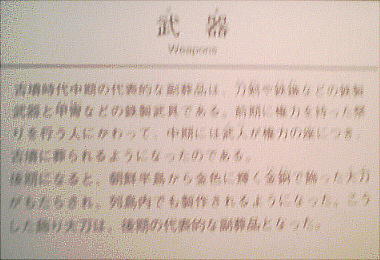 武 器
Weapons
古墳時代中期の代表的な副葬品は、刀剣や鉄鏃などの鉄製
武器と甲冑などの鉄製武具である。前期に権力を持った祭
りを行う人にかわって、中期には武人が権力の座につき、
古墳に葬られるようになったのである。
後期になると、朝鮮半島から金色に輝く金銅で飾った大刀
がもたらされ、列島内でも製作されるようになった。こう
した飾り大刀は、後期の代表的な副葬品となった。